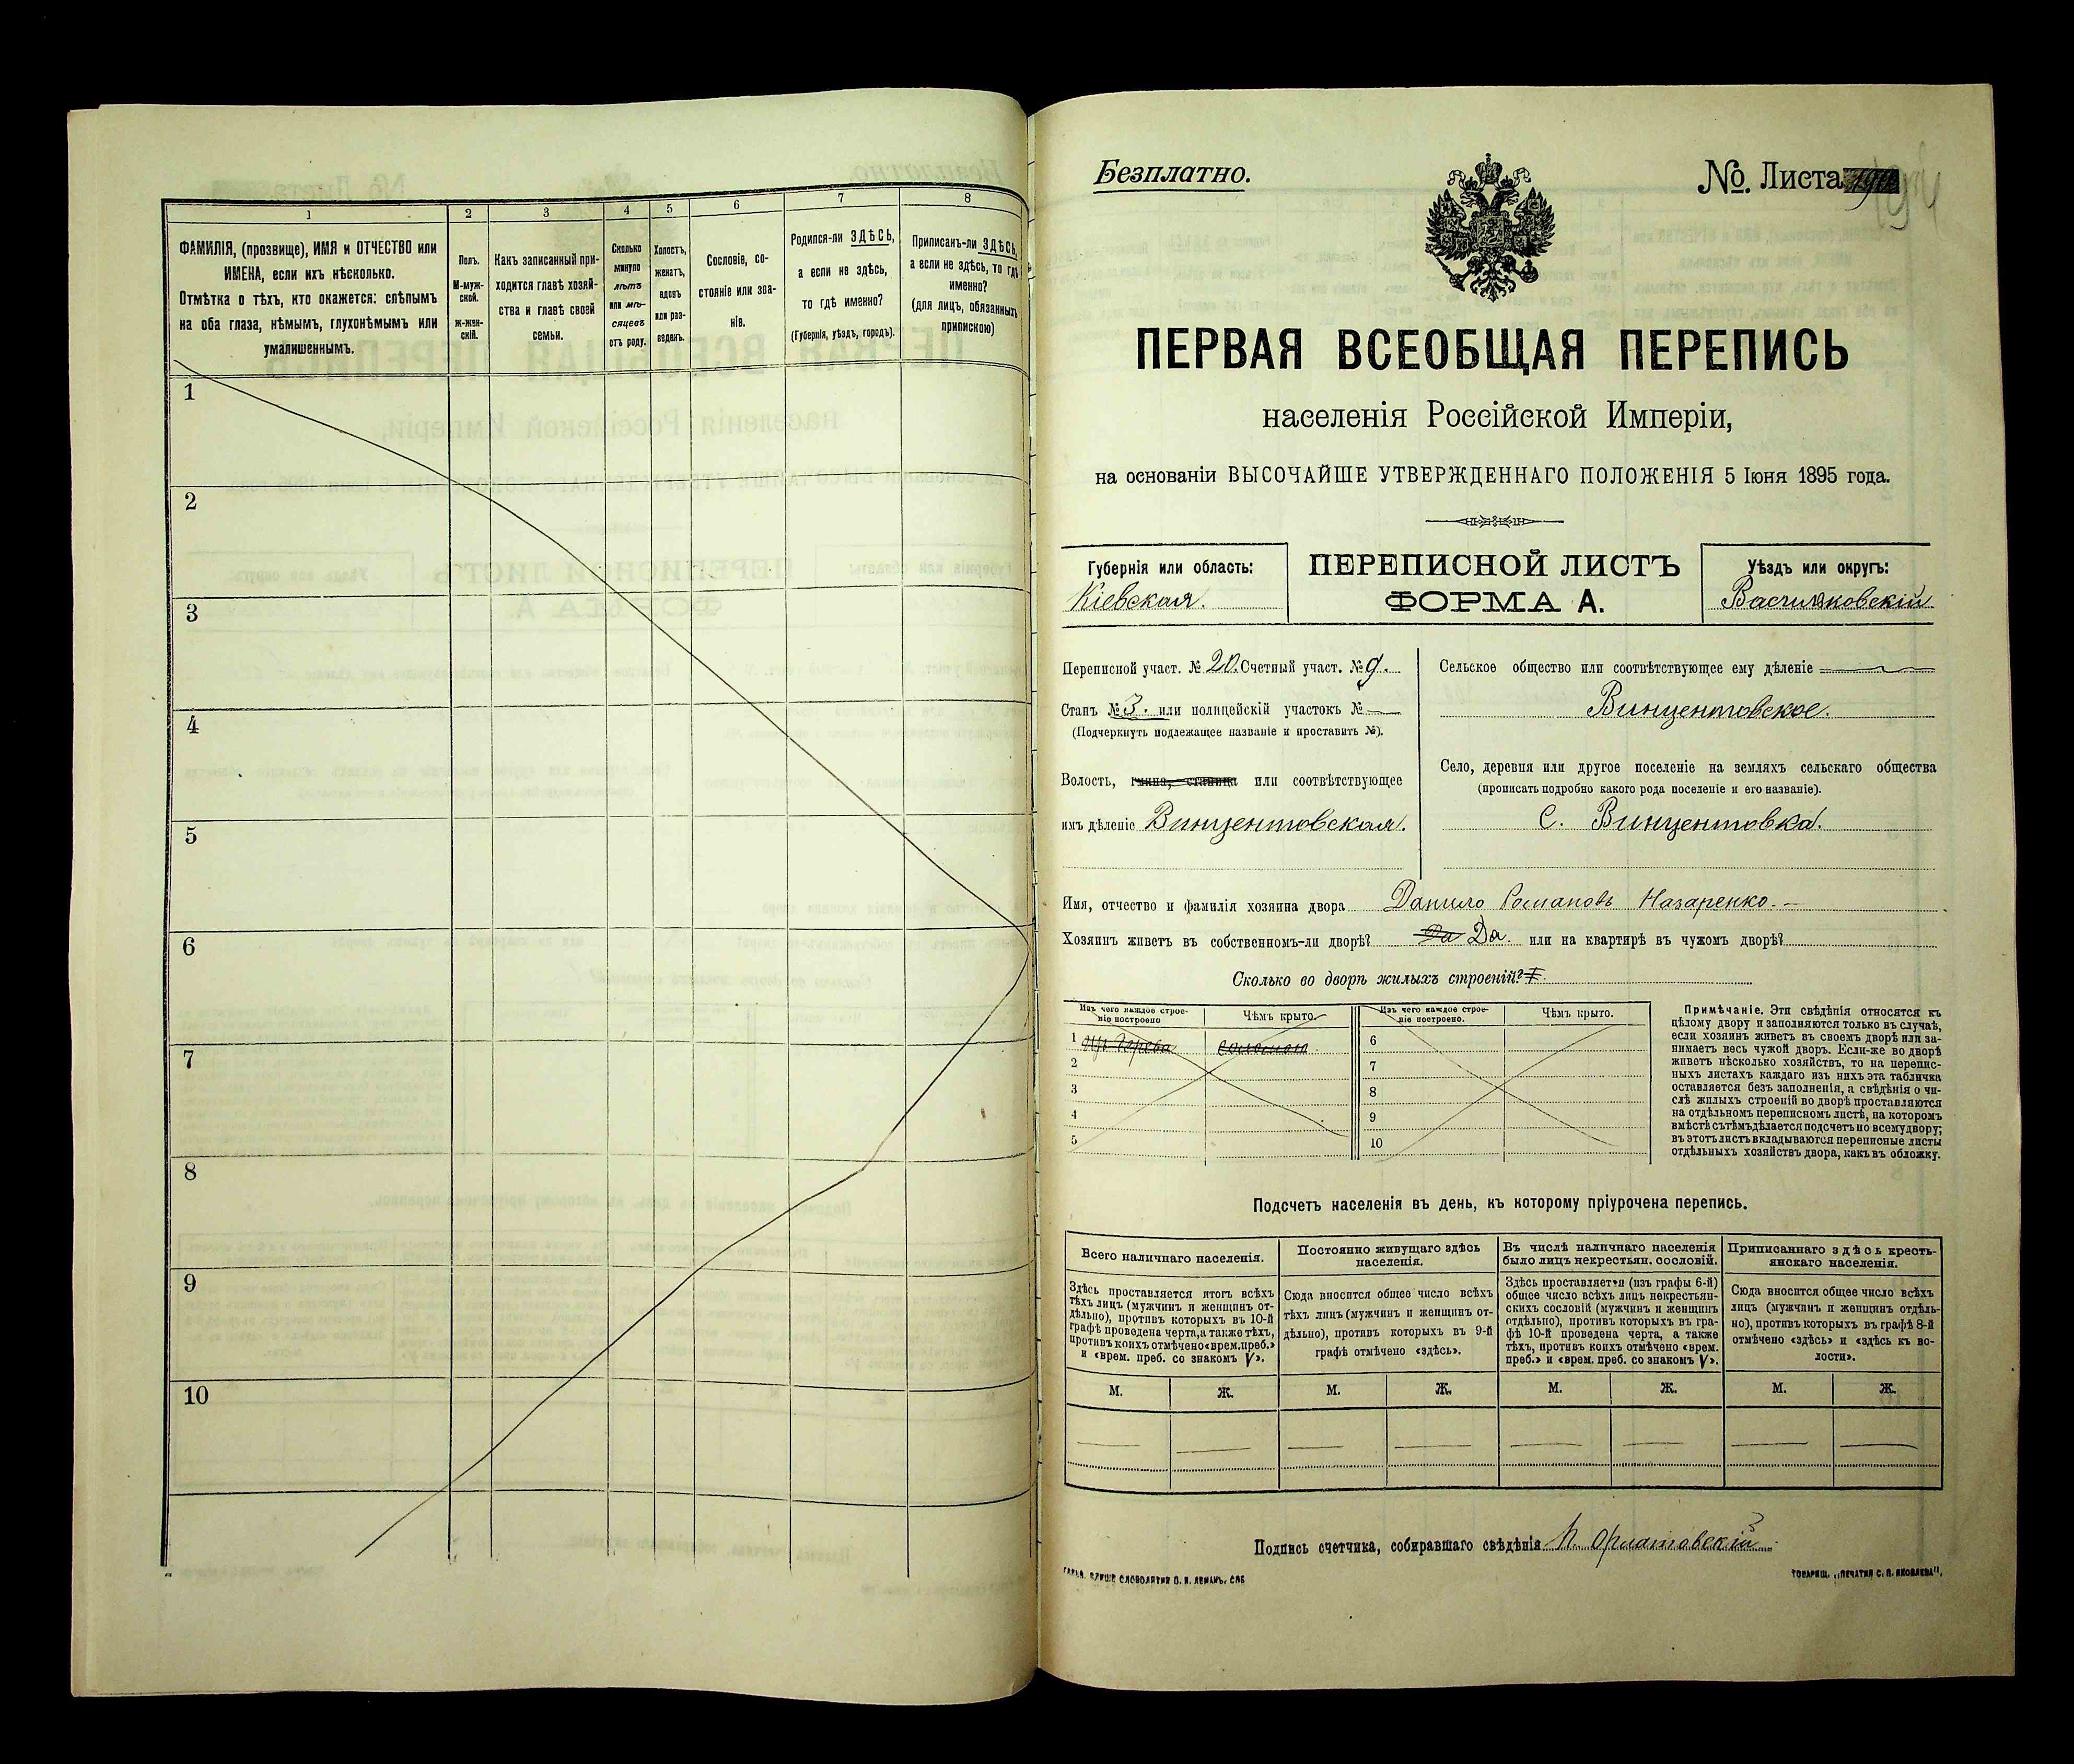 1
2
3
4
5
6
7
8
ФАМИЛІЯ, (прозвище), ИМЯ и ОТЧЕСТВО или
ИМЕНА, если ихъ нѣсколько.
Отмѣтка о тѣхъ, кто окажется: слѣпымъ
на оба глаза, нѣмымъ, глухонѣмымъ или
умалишеннымъ.
Полъ.
М-муж-
ской.
Ж-жен-
скій.
Какъ записанный при-
ходится главѣ хозяй-
ства и главѣ своей
семьи.
Сколько
минуло
лѣтъ
или мѣ-
сяцевъ
отъ роду.
Холостъ,
женатъ,
вдовъ
или раз-
веденъ.
Сословіе, со-
стояніе или зва-
ніе.
Родился-ли ЗДѢСЬ,
а если не здѣсь,
то гдѣ именно?
(Губернія, уѣздъ, городъ).
Приписанъ-ли ЗДѢСЬ,
а если не здѣсь, то гдѣ
именно?
(для лицъ, обязанныхъ
припискою)
1
2
3
4
5
6
7
8
9
10
Безплатно.
№. Листа
194
ПЕРВАЯ ВСЕОБЩАЯ ПЕРЕПИСЬ
населенія Россійской Имперіи,
на основаніи ВЫСОЧАЙШЕ УТВЕРЖДЕННАГО ПОЛОЖЕНІЯ 5 Іюня 1895 года.
Губернія или область:
Кіевская.
ПЕРЕПИСНОЙ ЛИСТЪ
ФОРМА А.
Уѣздъ или округъ:
Васильковскій
Переписной участ. № 20. Счетный участ. № 9.
Станъ № 3. или полицейскій участокъ № —
(Подчеркнуть подлежащее названіе и проставить №).
Волость, гмина, станица или соотвѣтствующее
имъ дѣленіе Винцентовская.
Сельское общество или соотвѣтствующее ему дѣленіе
Винцентовское.
Село, деревня или другое поселеніе на земляхъ сельскаго общества
(прописать подробно какого рода поселеніе и его названіе).
С. Винцентовка.
Имя, отчество и фамилія хозяина двора Данило Романовъ Назаренко. —
Хозяинъ живетъ въ собственномъ-ли дворѣ? Да Да. или на квартирѣ въ чужомъ дворѣ?
Сколько во дворѣ жилыхъ строеній? I.
Изъ чего каждое строе-
ніе построено
Чѣмъ крыто.
Изъ чего каждое строе-
ніе построено.
Чѣмъ крыто.
1 Изъ дерева соломою
2
3
4
5
6
7
8
9
10
Примѣчаніе. Эти свѣдѣнія относятся къ
цѣлому двору и заполняются только въ случаѣ,
если хозяинъ живетъ въ своемъ дворѣ или за-
нимаетъ весь чужой дворъ. Если-же во дворѣ
живетъ нѣсколько хозяйствъ, то на перепис-
ныхъ листахъ каждаго изъ нихъ эта табличка
оставляется безъ заполненія, а свѣдѣнія о чи-
слѣ жилыхъ строеній во дворѣ проставляются
на отдѣльномъ переписномъ листѣ, на которомъ
вмѣстѣ съ тѣмъ дѣлается подсчетъ по всему двору;
въ этотъ листъ вкладываются переписные листы
отдѣльныхъ хозяйствъ двора, какъ въ обложку.
Подсчетъ населенія въ день, къ которому пріурочена перепись.
Всего наличнаго населенія.
Постоянно живущаго здѣсь
населенія.
Въ числѣ наличнаго населенія
было лицъ некрестьян. сословій.
Приписаннаго здѣсь кресть-
янскаго населенія.
Здѣсь проставляется итогъ всѣхъ
тѣхъ лицъ (мужчинъ и женщинъ от-
дѣльно), противъ которыхъ въ 10-й
графѣ проведена черта, а также тѣхъ,
противъ коихъ отмѣчено «врем. преб.»
и «врем. преб. со знакомъ V».
Сюда вносится общее число всѣхъ
тѣхъ лицъ (мужчинъ и женщинъ от-
дѣльно), противъ которыхъ въ 9-й
графѣ отмѣчено «здѣсь».
Здѣсь проставляется (изъ графы 6-й)
общее число всѣхъ лицъ некрестьян-
скихъ сословій (мужчинъ и женщинъ
отдѣльно), противъ которыхъ въ гра-
фѣ 10-й проведена черта, а также
тѣхъ, противъ коихъ отмѣчено «врем.
преб.» и «врем. преб. со знакомъ V».
Сюда вносится общее число всѣхъ
лицъ (мужчинъ и женщинъ отдѣль-
но), противъ которыхъ въ графѣ 8-й
отмѣчено «здѣсь» и «здѣсь къ во-
лости».
М. Ж. М. Ж. М. Ж. М. Ж.
— — — — — — — —
Подпись счетчика, собиравшаго свѣдѣнія
ТОВАРИЩ. „ПЕЧАТНЯ С. П. ЯКОВЛЕВА".